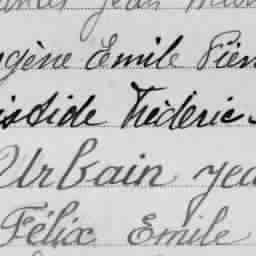 Jean
gène Emile Pier
istide Fréderic
Urbain Jea
Félix Emile